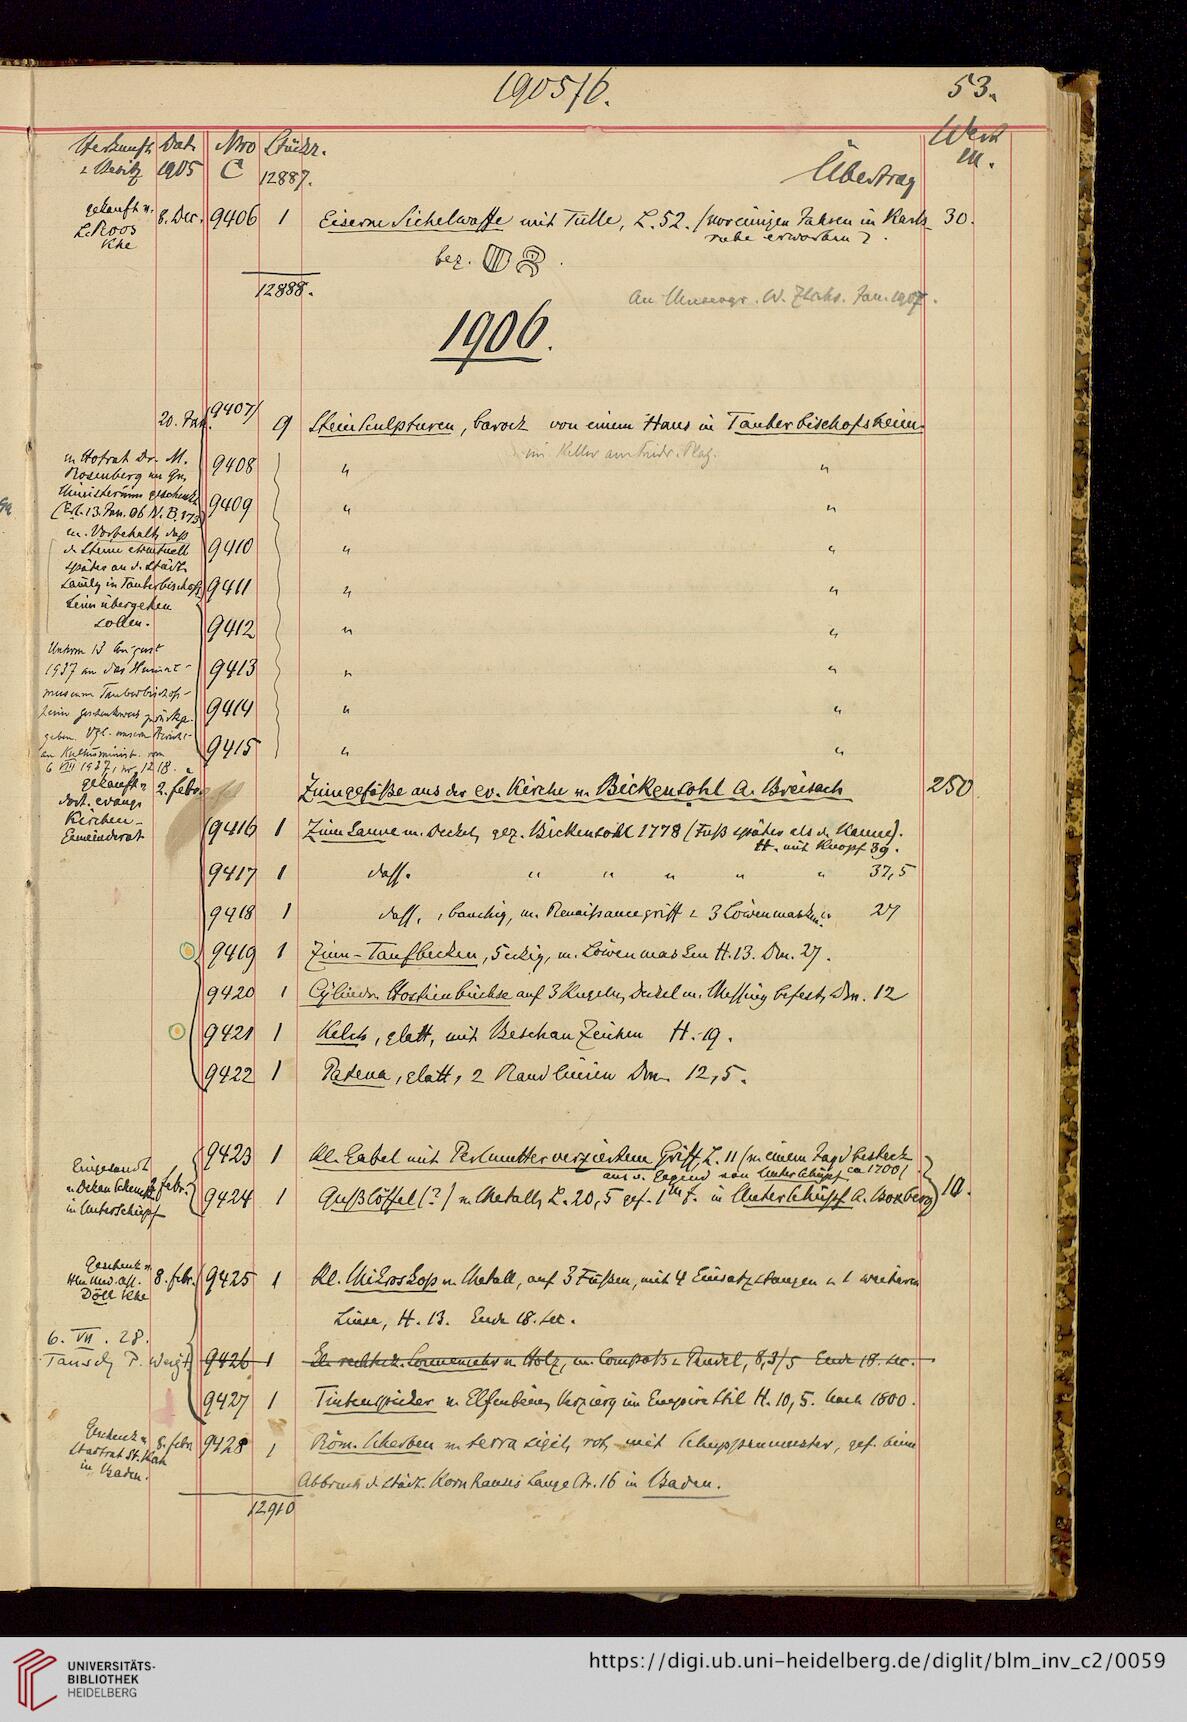 1905/6. 53.
Herkunft Dat. Nro Stückz. Wert
u. Besitz 1905 C 12887. Übertrag M.
gekauft v. 8. Dec. 9406 1 Eiserne Sichelwaffe mit Tülle, L. 52. (vor einigen Jahren in Karls- 30.
L. Roos ruhe erworben).
Khe
bez.
12888.
Jan. 1907.
1906.
20. Jan. 9407/ 9 Steinsculpturen, barock von einem Haus in Tauberbischofsheim.
im Keller am Friedr. Platz.
v. Hofrat Dr. M. 9408 " "
Rosenberg im Gr.
Ministerium geschenkt 9409 " "
(Erl. 13. Jan. 06 N. B. 173)
m. Vorbehalt, dass
d. Steine eventuell 9410 " "
später an d. städt.
Samlg in Tauberbischofs- 9411 " "
heim übergehen
sollen. 9412 " "
Unterm 13 August
1937 an das Heimat- 9413 " "
museum Tauberbischofs-
heim geschenkweis zurückge- 9414 " "
geben. Vgl. unsern Bericht
an Kultusminist. vom 9415 " "
6 VIII 1937, nr. 1218.
gekauft v. 2. Febr. Zinngefäße aus der ev. Kirche v. Bickensohl A. Breisach 250
dort. evang.
Kirchen-
Gemeinderat 9416 1 Zinnkanne m. Deckel, gez. Bickensohl 1778 (Fuß später als d. Kanne).
H. mit Knopf 39.
9417 1 dass. " " " " " 37,5
9418 1 dass., bauchig, m. Renaissancegriff u. 3 Löwenmasken. " 27
9419 1 Zinn-Taufbecken, 5 eckig, m. Löwenmasken H. 13. Dm. 27.
9420 1 Cylindr. Hostienbüchse auf 3 Kugeln, Deckel m. Messing befest. Dm. 12
9421 1 Kelch, glatt, mit Beschauzeichen H. 19.
9422 1 Patena, glatt, 2 Randlinien Dm. 12,5.
9423 1 Kl. Gabel mit Perlmutter verziertem Griff, L. 11 (v. einem Jagdbesteck
Eingesandt aus d. Gegend von Unterschüpf ca 1700)
v. Dekan Febr. 9424 1 Gußlöffel (?) v. Metall, L. 20,5 gef. 1 m t. in Unterschüpf A. Boxberg 10.
in Unterschüpf
Geschenk v.
8. Febr. 9425 1 Kl. Mikroskop v. Metall, auf 3 Füßen, mit 4 Einsatzstangen u. 1 weiteren
Döll Khe
Linse, H. 13. Ende 18. sec.
6. VII. 28.
Tausch P. Weigt 9426 1 Kl. rechteck. Sonnenuhr v. Holz, m. Compaß u. Pendel, 8,3/5 Ende 18. sec.
9427 1 v. Elfenbein, Verzierg im Empirestil H. 10,5. Nach 1800.
Geschenk v. 8. Febr. 9428 1 Röm. Scherben v. terra sigil, rot, mit Schuppenmuster, gef. beim
Stadtrat St. Kah
in Baden. Abbruch d. städt. Kornhauses Lange Str. 16 in Baden.
12910
UNIVERSITÄTS-
BIBLIOTHEK
HEIDELBERG
https://digi.ub.uni-heidelberg.de/diglit/blm_inv_c2/0059